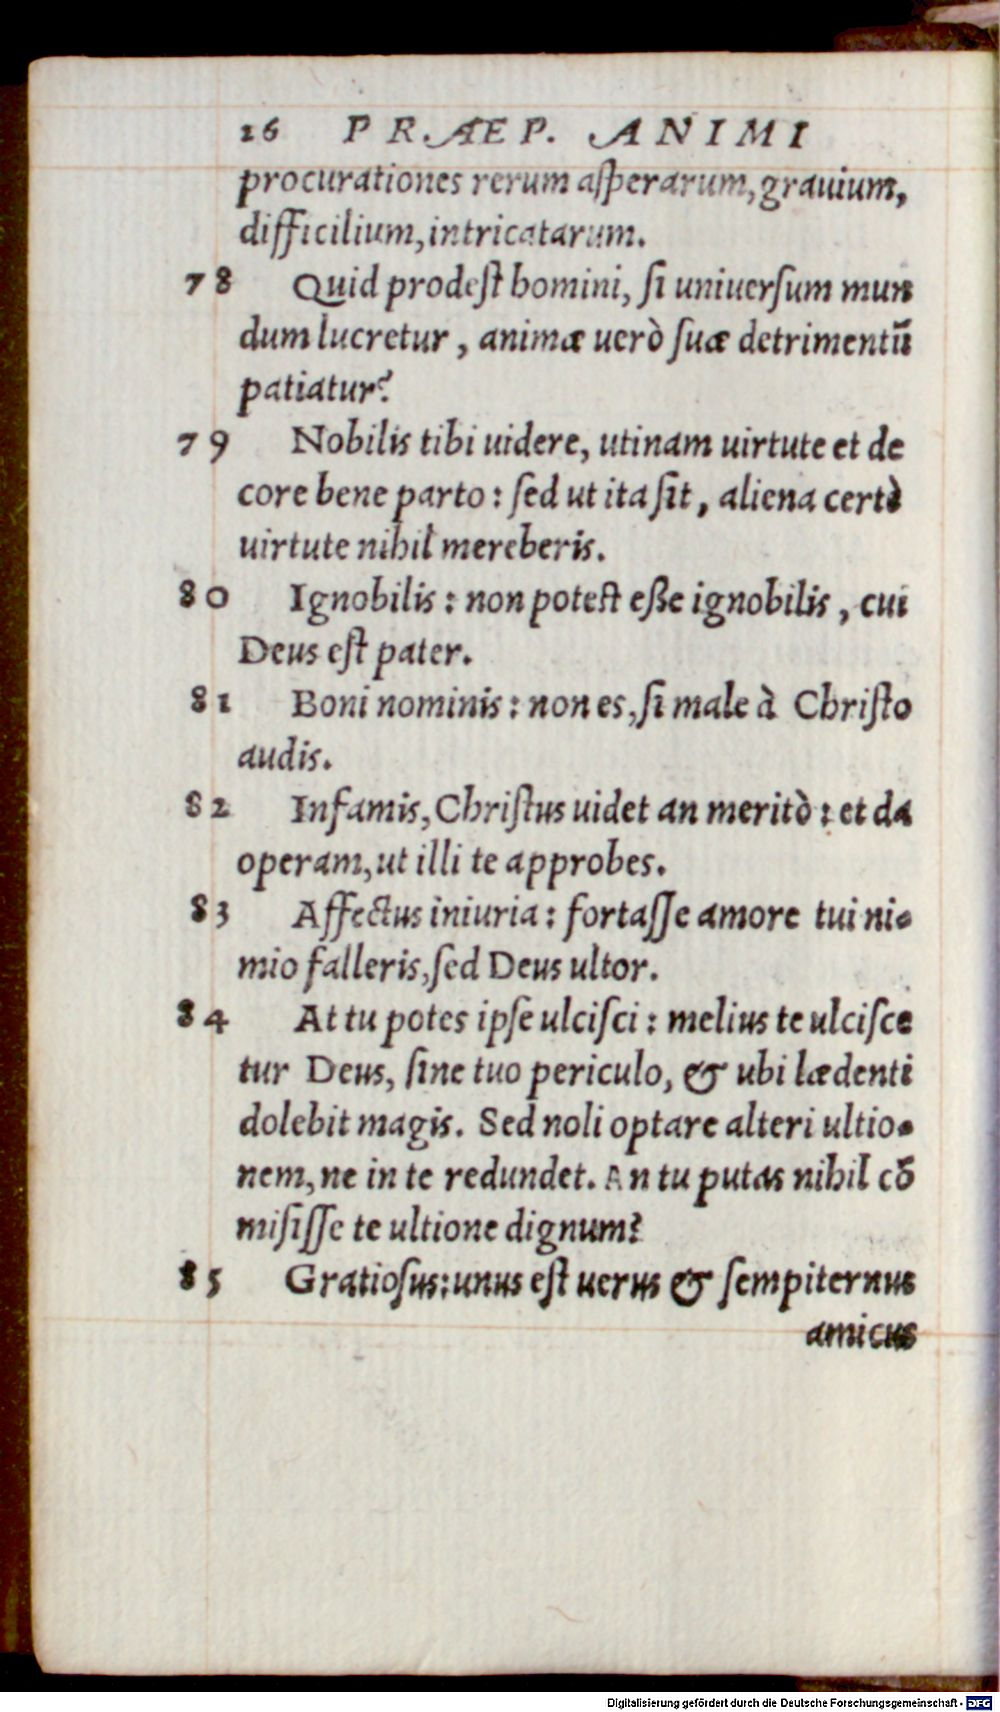 26 PRAEP. ANIMI
procurationes rerum aſperarum, grauium,
difficilium, intricatarum.
78 Quid prodeſt homini, ſi uniuerſum mun
dum lucretur, animæ uerò ſuæ detrimentũ
patiatur?
79 Nobilis tibi uidere, utinam uirtute et de
core bene parto: ſed ut ita ſit, aliena certè
uirtute nihil mereberis.
80 Ignobilis: non poteſt eße ignobilis, cui
Deus eſt pater.
81 Boni nominis: non es, ſi male à Chriſto
audis.
82 Infamis, Chriſtus uidet an meritò: et da
operam, ut illi te approbes.
83 Affectus iniuria: fortaſſe amore tui ni-
mio falleris, ſed Deus ultor.
84 At tu potes ipſe ulciſci: melius te ulciſce
tur Deus, ſine tuo periculo, & ubi lædenti
dolebit magis. Sed noli optare alteri ultio-
nem, ne in te redundet. An tu putas nihil cõ
miſiſſe te ultione dignum?
85 Gratioſus: unus eſt uerus & ſempiternus
amicus
Digitalisierung gefördert durch die Deutsche Forschungsgemeinschaft - DFG